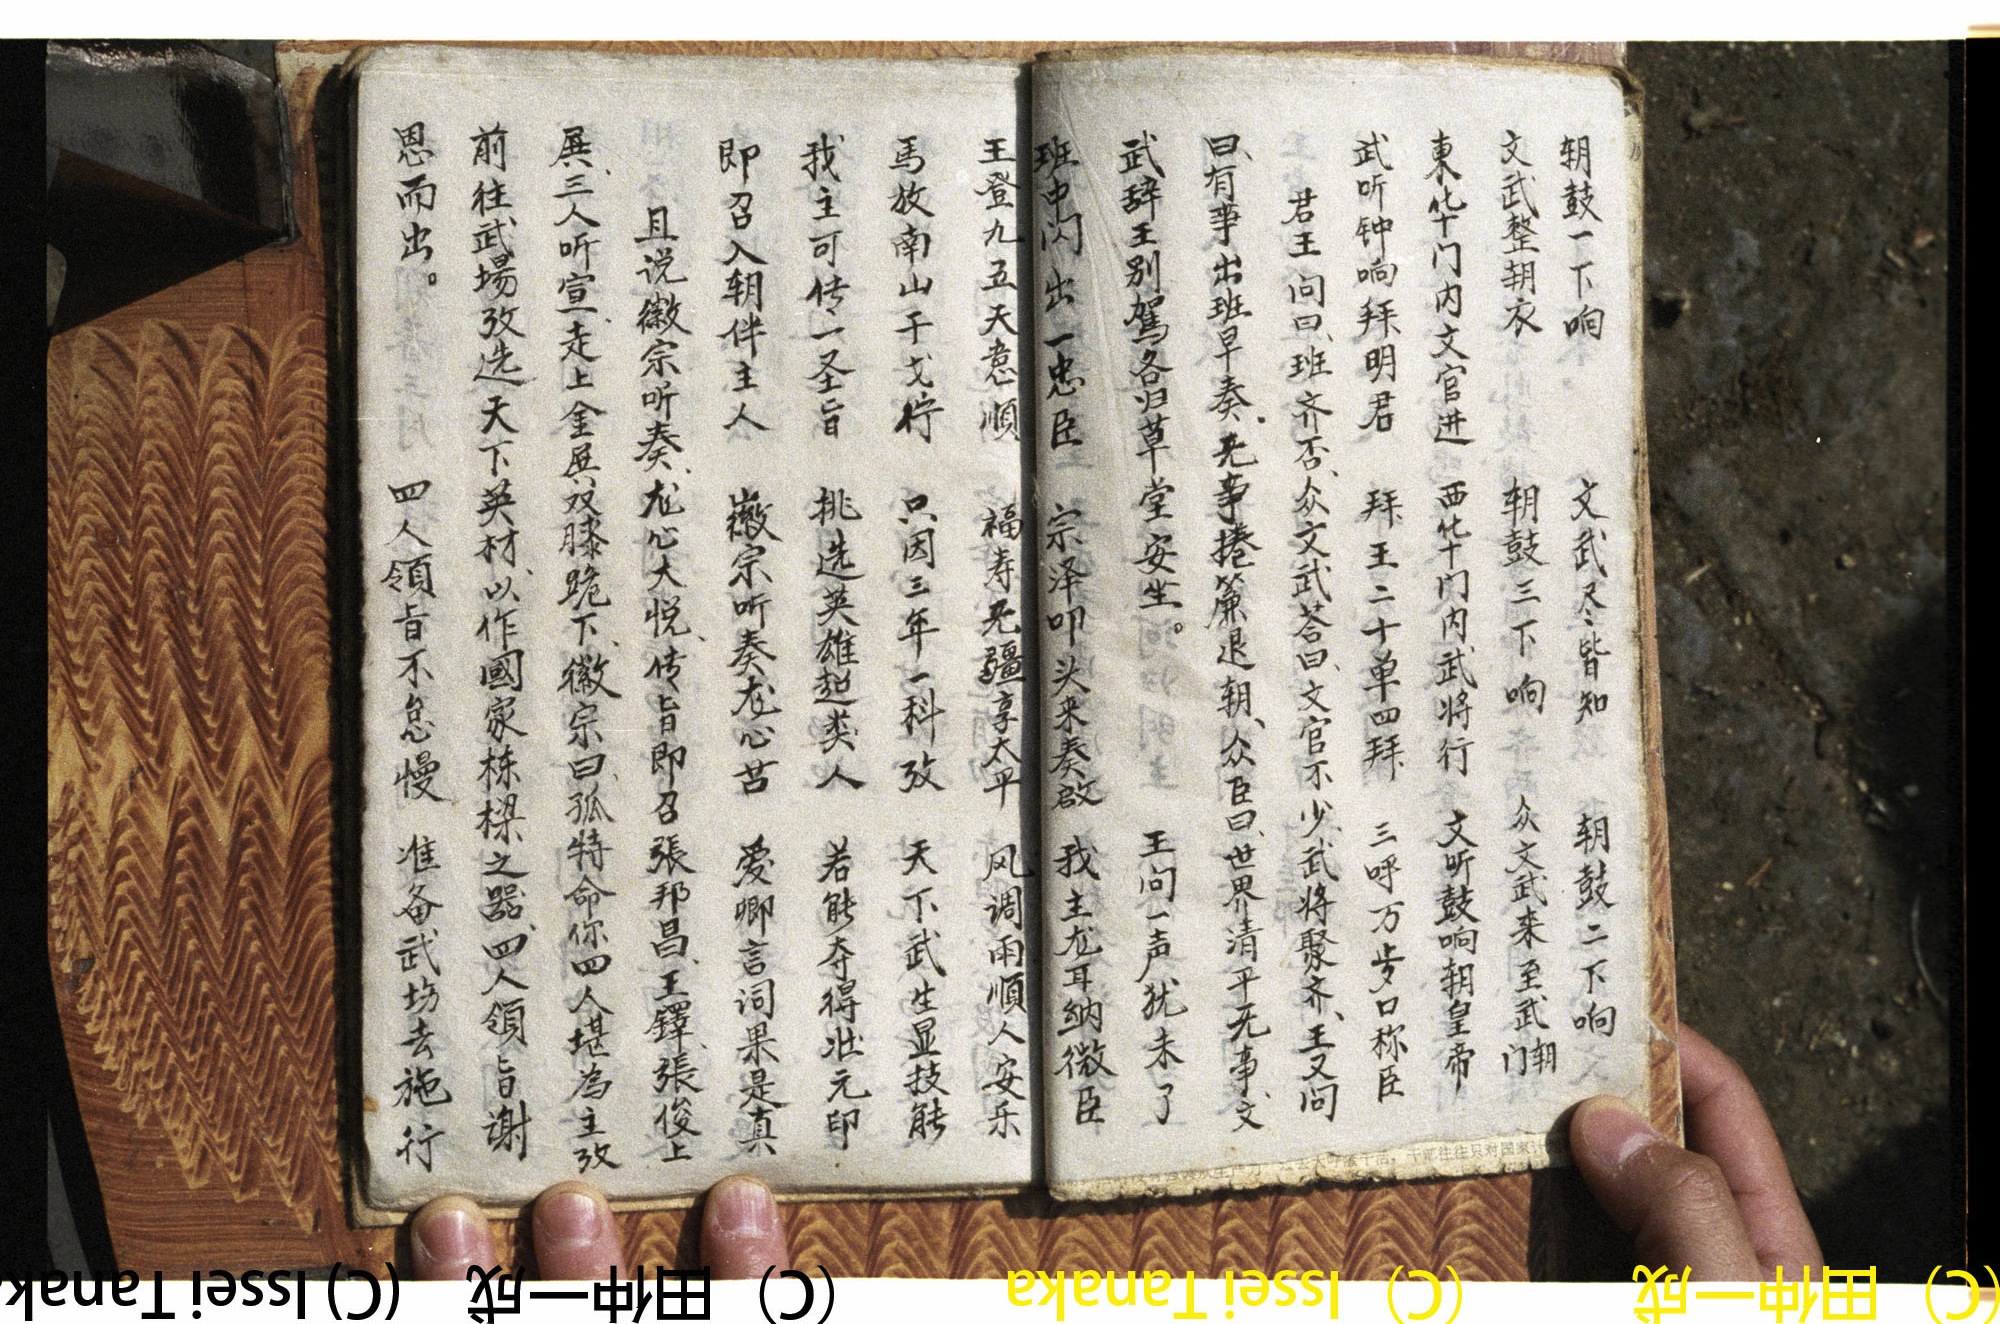 朝鼓一下响 文武尽皆知 朝鼓二下响
文武整朝衣 朝鼓三下响 众文武来至武朝门
東华门内文官进 西华门内武将行 文听鼓响朝皇帝
武听钟响拜明君 拜王二十单四拜 三呼万岁口称臣
君王问曰、班齐否、众文武荅曰、文官不少武将聚齐、王又问
曰、有事出班早奏、无事捲簾退朝、众臣曰、世界清平无事、文
武辞王别駕各归草堂安坐。 王问一声犹未了
班中闪出一忠臣 宗泽叩头来奏啟 我主龙耳纳微臣
王登九五天意順 福寿无疆享太平 风调雨順人安乐
馬放南山干戈停 只因三年一科攷 天下武生显技能
我主可传一圣旨 挑选英雄超类人 若能夺得壮元印
即召入朝伴主人 徽宗听奏龙心苦 爱卿言词果是真
且说徽宗听奏、龙心大悦、传旨即召張邦昌、王鐸、張俊上
展、三人听宣、走上金展、双膝跪下、徽宗曰、孤特命你四人堪為主攷
前往武場攷选天下英材、以作國家栋樑之器、四人領旨謝
恩而出。 四人領旨不怠慢 准备武场去施行
干部往往只对国家计
(C) Issei Tanaka (C) 田仲一成
(C) Issei Tanaka (C) 田仲一成